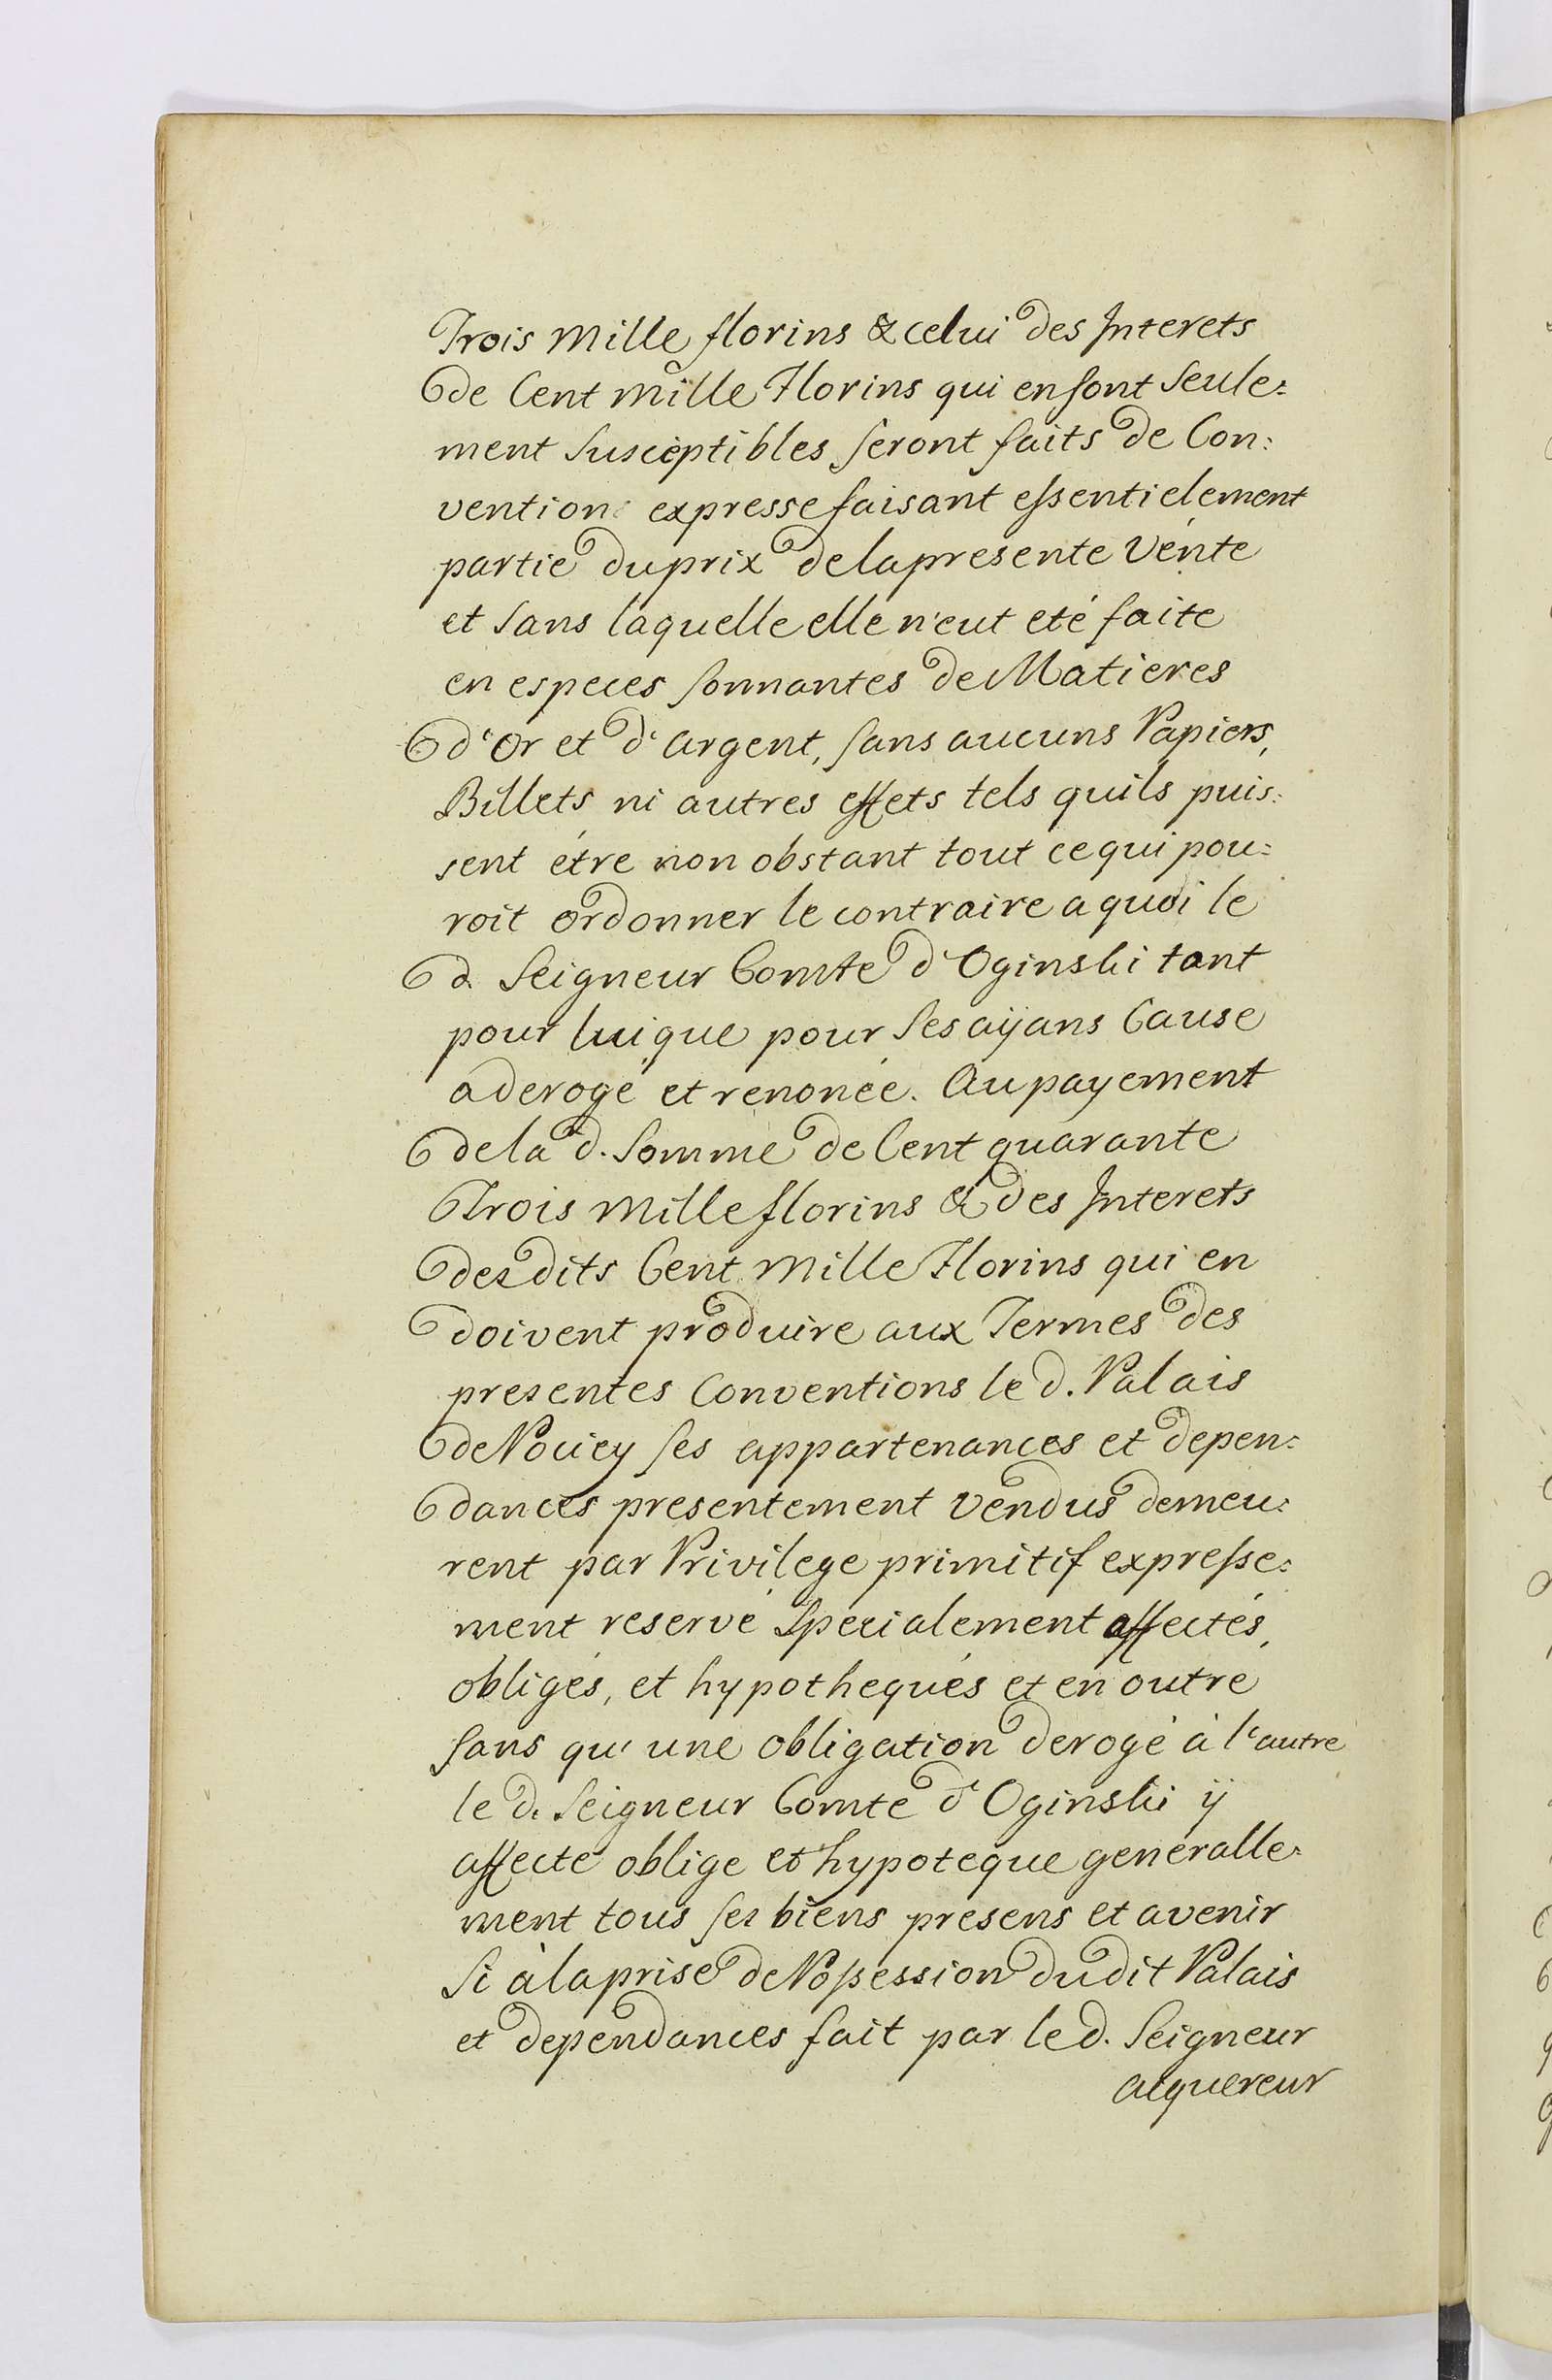 Trois Mille florins & celui des Interets
de Cent mille Florins qui en sont seule=
ment susceptibles seront faits de Con=
vention expresse faisant essentielement
partie du prix de la presente Vente
et sans laquelle elle n'eut eté faite
en especes sonnantes de Matieres
d'Or et d'argent, sans aucuns Papiers,
Billets ni autres effets tels quils puis=
sent étre non obstant tout ce qui pou=
roit ordonner le contraire a quoi le
d. Seigneur Comte d'Oginski tant
pour lui que pour ses aÿans Cause
a derogé et renoncé. Au payement
de la d. Somme de Cent quarante
Trois mille florins & des Interets
desdits Cent Mille Florins qui en
doivent produire aux Termes des
presentes Conventions le d. Palais
de ses appartenances et depen=
dances presentement vendus demeu=
rent par Privilege primitif expresse=
ment reservé specialement affectés,
obligés, et hypothequés et en outre
sans qu'une obligation deroge à l'autre
le d. Seigneur Comte d'Oginski ÿ
affecte oblige et hypoteque generalle=
ment tous ses biens presens et avenir
Si à la prise de Possession dudit Palais
et dependances fait par le d. Seigneur
acquereur